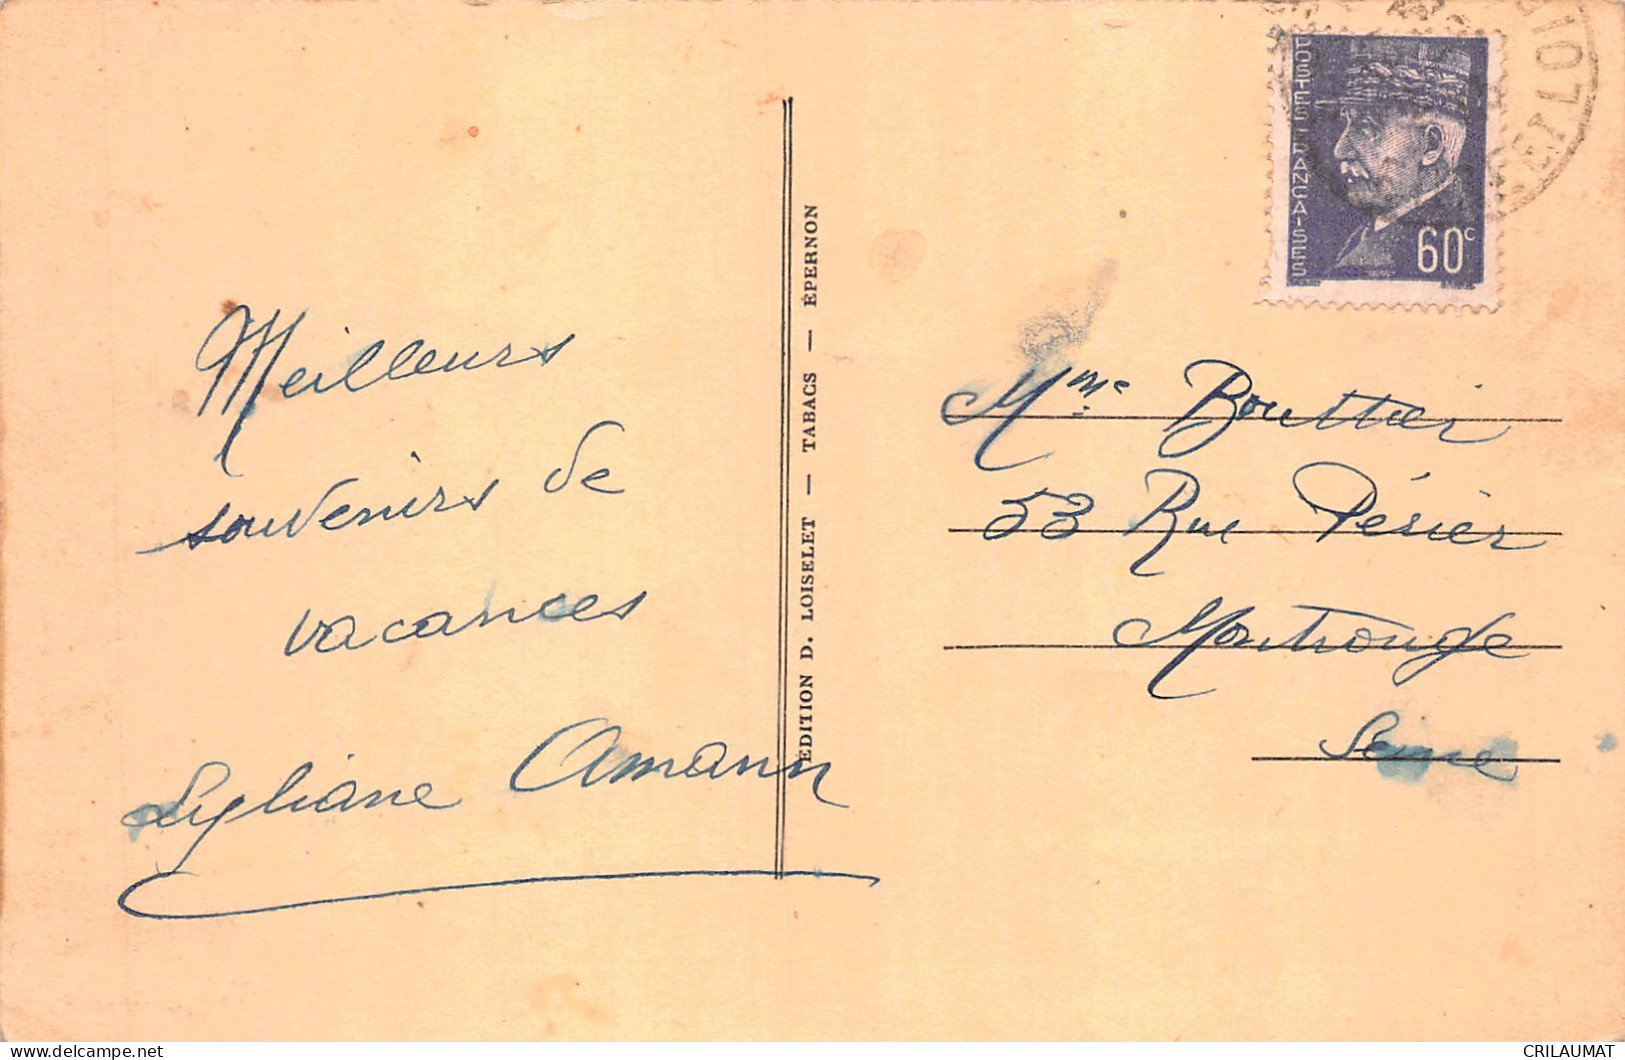 Meilleurs
souvenirs de
vacances
Lyliane Amann
EDITION D. LOISELET — TABACS — ÉPERNON
POSTES FRANÇAISES
60c
Mme Bouttier
53 Rue Périer
Montrouge
Seine
CRILAUMAT